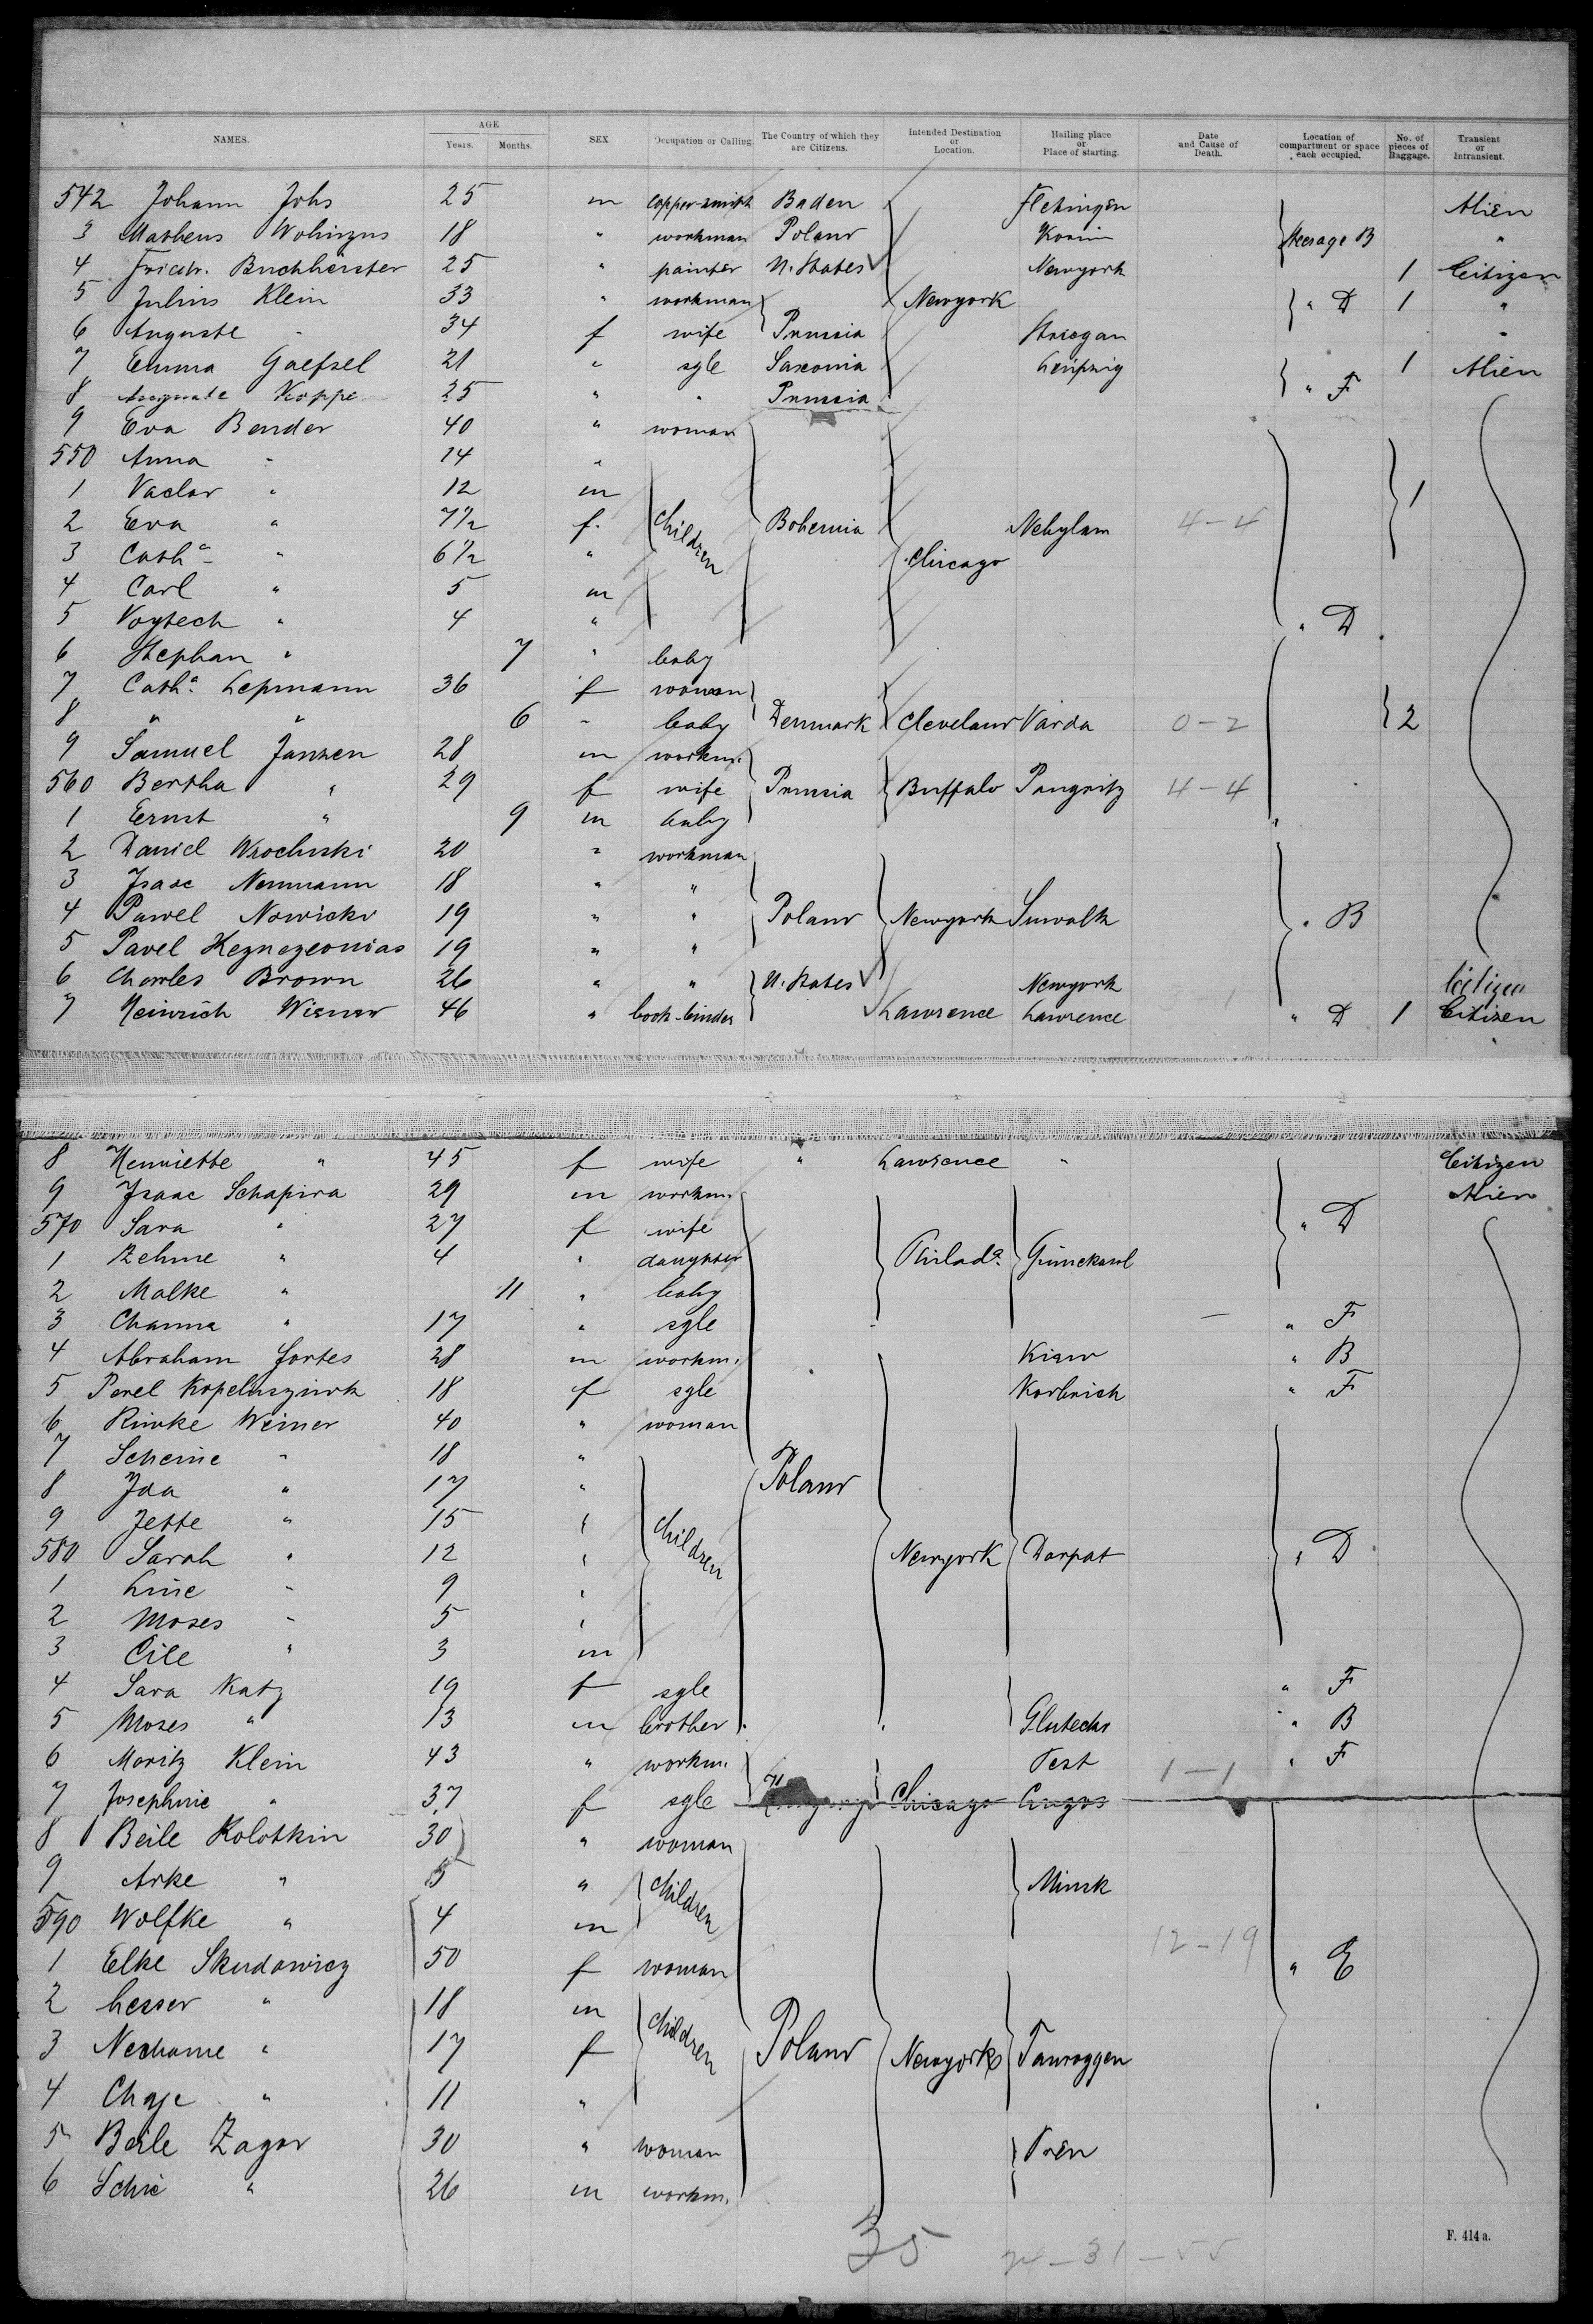 NAMES. AGE Years. Months. SEX Occupation or Calling. The Country of which they are Citizens. Intended Destination or Location. Hailing place or Place of starting. Date and Cause of Death. Location of compartment or space each occupied. No. of pieces of Baggage. Transient or Intransient.
542 Johann Johs 25 m copper-smith Baden Flehingen Alien
3 Matheus 18 " workman Poland Steerage B "
4 Friedr. Buchherster 25 " painter U. States Newyork 1 Citizen
5 Julius Klein 33 " workman Newyork " D 1 "
6 Auguste " 34 f wife Prussia "
7 Emma Gaefsel 21 " sgle Saxonia Leipzig 1 Alien
8 Auguste Koppe 25 " " Prussia " F
9 Eva Bender 40 " woman
550 Anna " 14 "
1 Vaclav " 12 m 1
2 Eva " 7½ f. children Bohemia Nehylam 4-4
3 Catha " 6½ " Chicago
4 Carl " 5 m
5 Voytech " 4 " " D
6 Stephan " 7 " baby
7 Catha Lepmann 36 f woman
8 " " 6 " baby Denmark Cleveland Varda 0-2 2
9 Samuel Janzen 28 m workm.
560 Bertha " 29 f wife Prussia Buffalo Pangritz 4-4
1 Ernst " 9 m baby
2 Daniel Wrochuski 20 " workman
3 Isaac Neumann 18 " "
4 Pawel Nowicki 19 " " Poland Newyork Suwalk " B
5 Pavel 19 " "
6 Charles Brown 26 " " U. States Newyork Citizen
7 Heinrich Wiener 46 " book-binder Lawrence Lawrence " D 1 Citizen
8 Henriette " 45 f wife " Lawrence " Citizen
9 Isaac Schapira 29 m workm. Alien
570 Sara " 27 f wife " D
1 Zehme " 4 " daughter Philada.
2 Malke " 11 " baby
3 Channe " 17 " sgle " F
4 Abraham Jortes 28 m workm. Kiew " B
5 Perel 18 f sgle " F
6 Rivke Weiner 40 " woman
7 Scheine " 18 "
8 Ida " 17 " Poland
9 Jette " 15 " children
580 Sarah " 12 " Newyork Dorpat " D
1 Line " 9 "
2 Moses " 5 "
3 Cile " 3 m
4 Sara Katz 19 f sgle " F
5 Moses " 13 m brother " B
6 Moritz Klein 43 " workm. Pest 1-1 " F
7 Josephine " 37 f sgle Chicago
8 Beile Kolotkin 30 " woman
9 Arke " 5 " children Minsk
590 Wolfke " 4 m 12-19
1 Elke Skudowicz 50 f woman " E
2 Lesser " 18 m children
3 Nechame " 17 f Poland Newyork Tauroggen
4 Chaje " 11 "
5 Beile Zagor 30 " woman
6 Schie " 26 m workm.
35
F. 414 a.